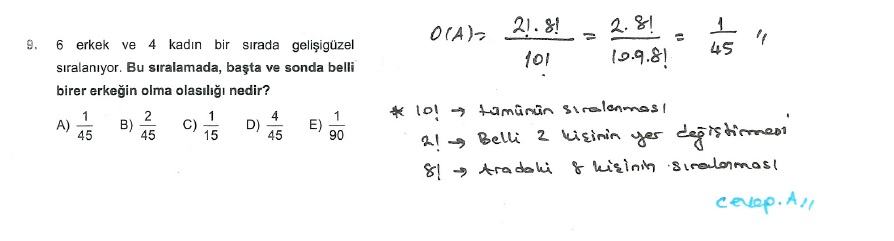 9. 6 erkek ve 4 kadın bir sırada gelişigüzel
sıralanıyor. Bu sıralamada, başta ve sonda belli
birer erkeğin olma olasılığı nedir?
A) 1/45 B) 2/45 C) 1/15 D) 4/45 E) 1/90
O(A) = 2!.8!/10! = 2.8!/10.9.8! = 1/45 //
* 10! → tümünün sıralanması
2! → Belli 2 kişinin yer değiştirmesi
8! → Aradaki 8 kişinin sıralanması
cevap.A//